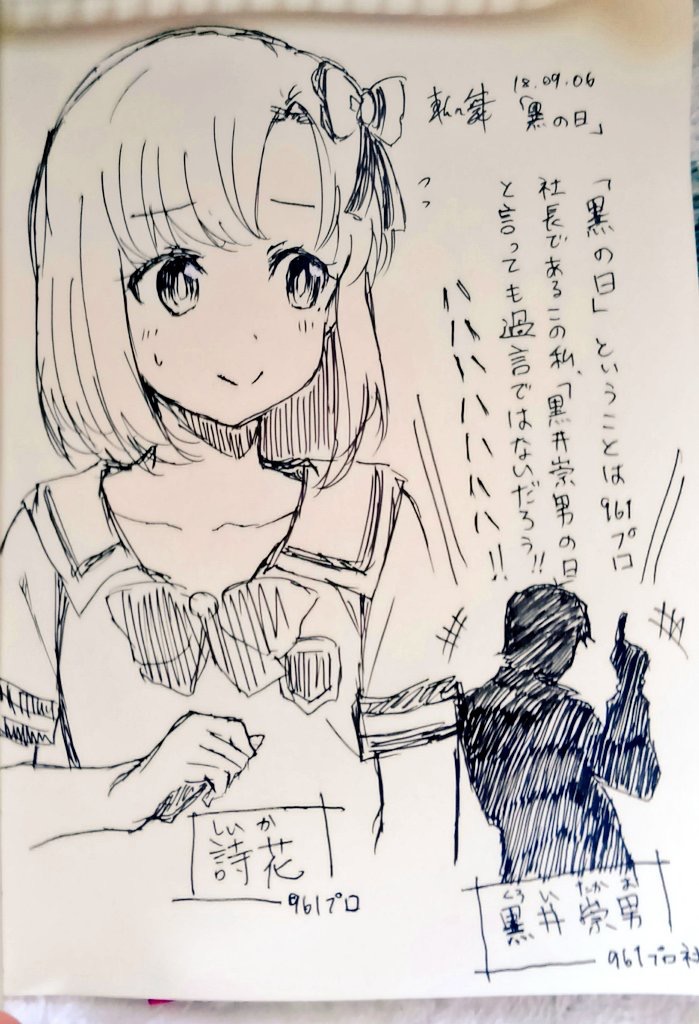 18.09.06
「黒の日」
「黒の日」ということは961プロ
社長であるこの私、「黒井崇男の日
と言っても過言ではないだろう!!
ハハハハハハハ!!
しいか
詩花
961プロ
くろいたかお
黒井崇男
961プロ社